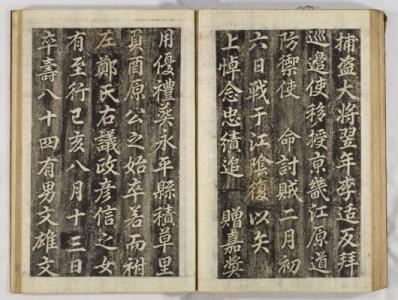 捕盜大將翌年李适反拜
巡邊使移授京畿江原道
防禦使 命討賊二月初
六日戰于江陰復以矢
上悼念忠績追 贈嘉獎
用優禮葬永平縣積草里
負酉原公之始卒若而祔
左鄭氏右議政彦信之女
有至行己亥八月十三日
卒壽八十四有男文雄文